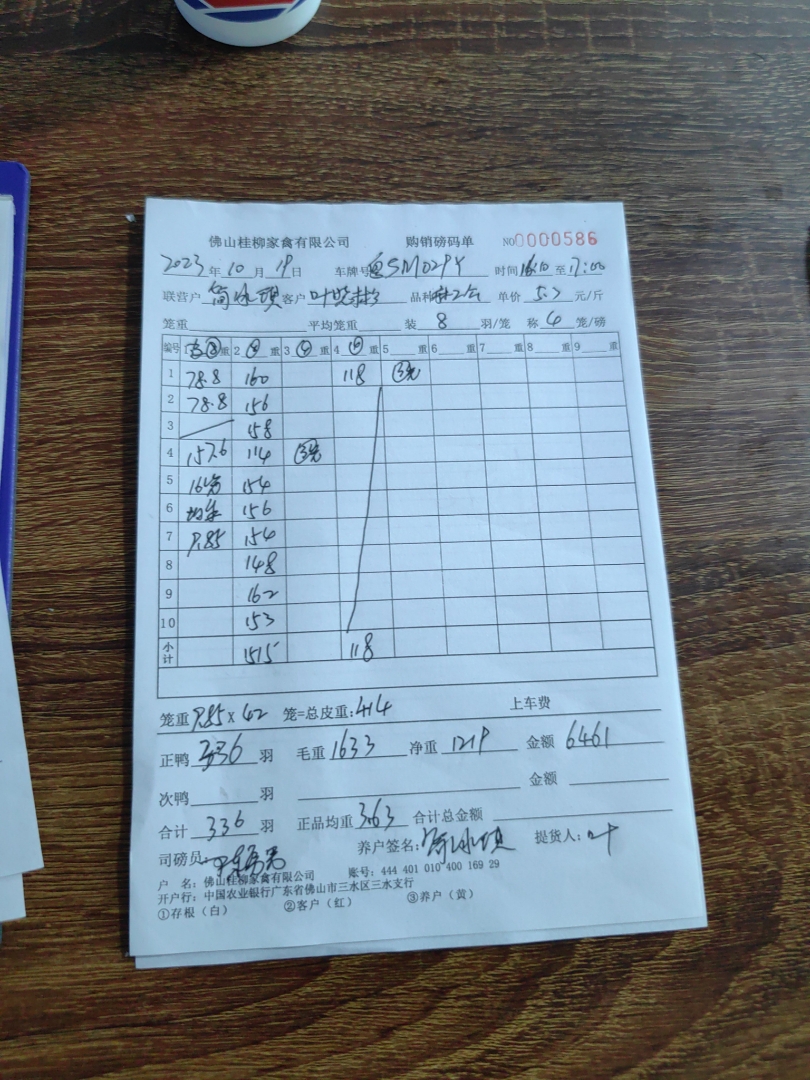 佛山桂柳家禽有限公司 购销磅码单 NO0000586
2023年10月19日 车牌号SM029Y 时间16:10至17:00
联营户 简冰琪 客户 叶 品种 单价 5.3 元/斤
笼重 平均笼重 装 8 羽/笼 称 4 笼/磅
编号 1 重 2 ④ 重 3 ④ 重 4 重 5 重 6 重 7 重 8 重 9 重
1 78.8 160 118 ③笼
2 78.8 156
3 158
4 157.6 114 ③笼
5 16笼 154
6 均重 156
7 9.85 154
8 148
9 162
10 153
小计 1515 118
笼重 9.85 x 42 笼=总皮重: 414 上车费
正鸭 336 羽 毛重 1633 净重 1219 金额 6461
次鸭 羽 金额
合计 336 羽 正品均重 3.63 合计总金额
司磅员: 养户签名: 简冰琪 提货人: 叶
户 名: 佛山桂柳家禽有限公司 账号: 444 401 010 400 169 29
开户行: 中国农业银行广东省佛山市三水区三水支行
①存根（白） ②客户（红） ③养户（黄）